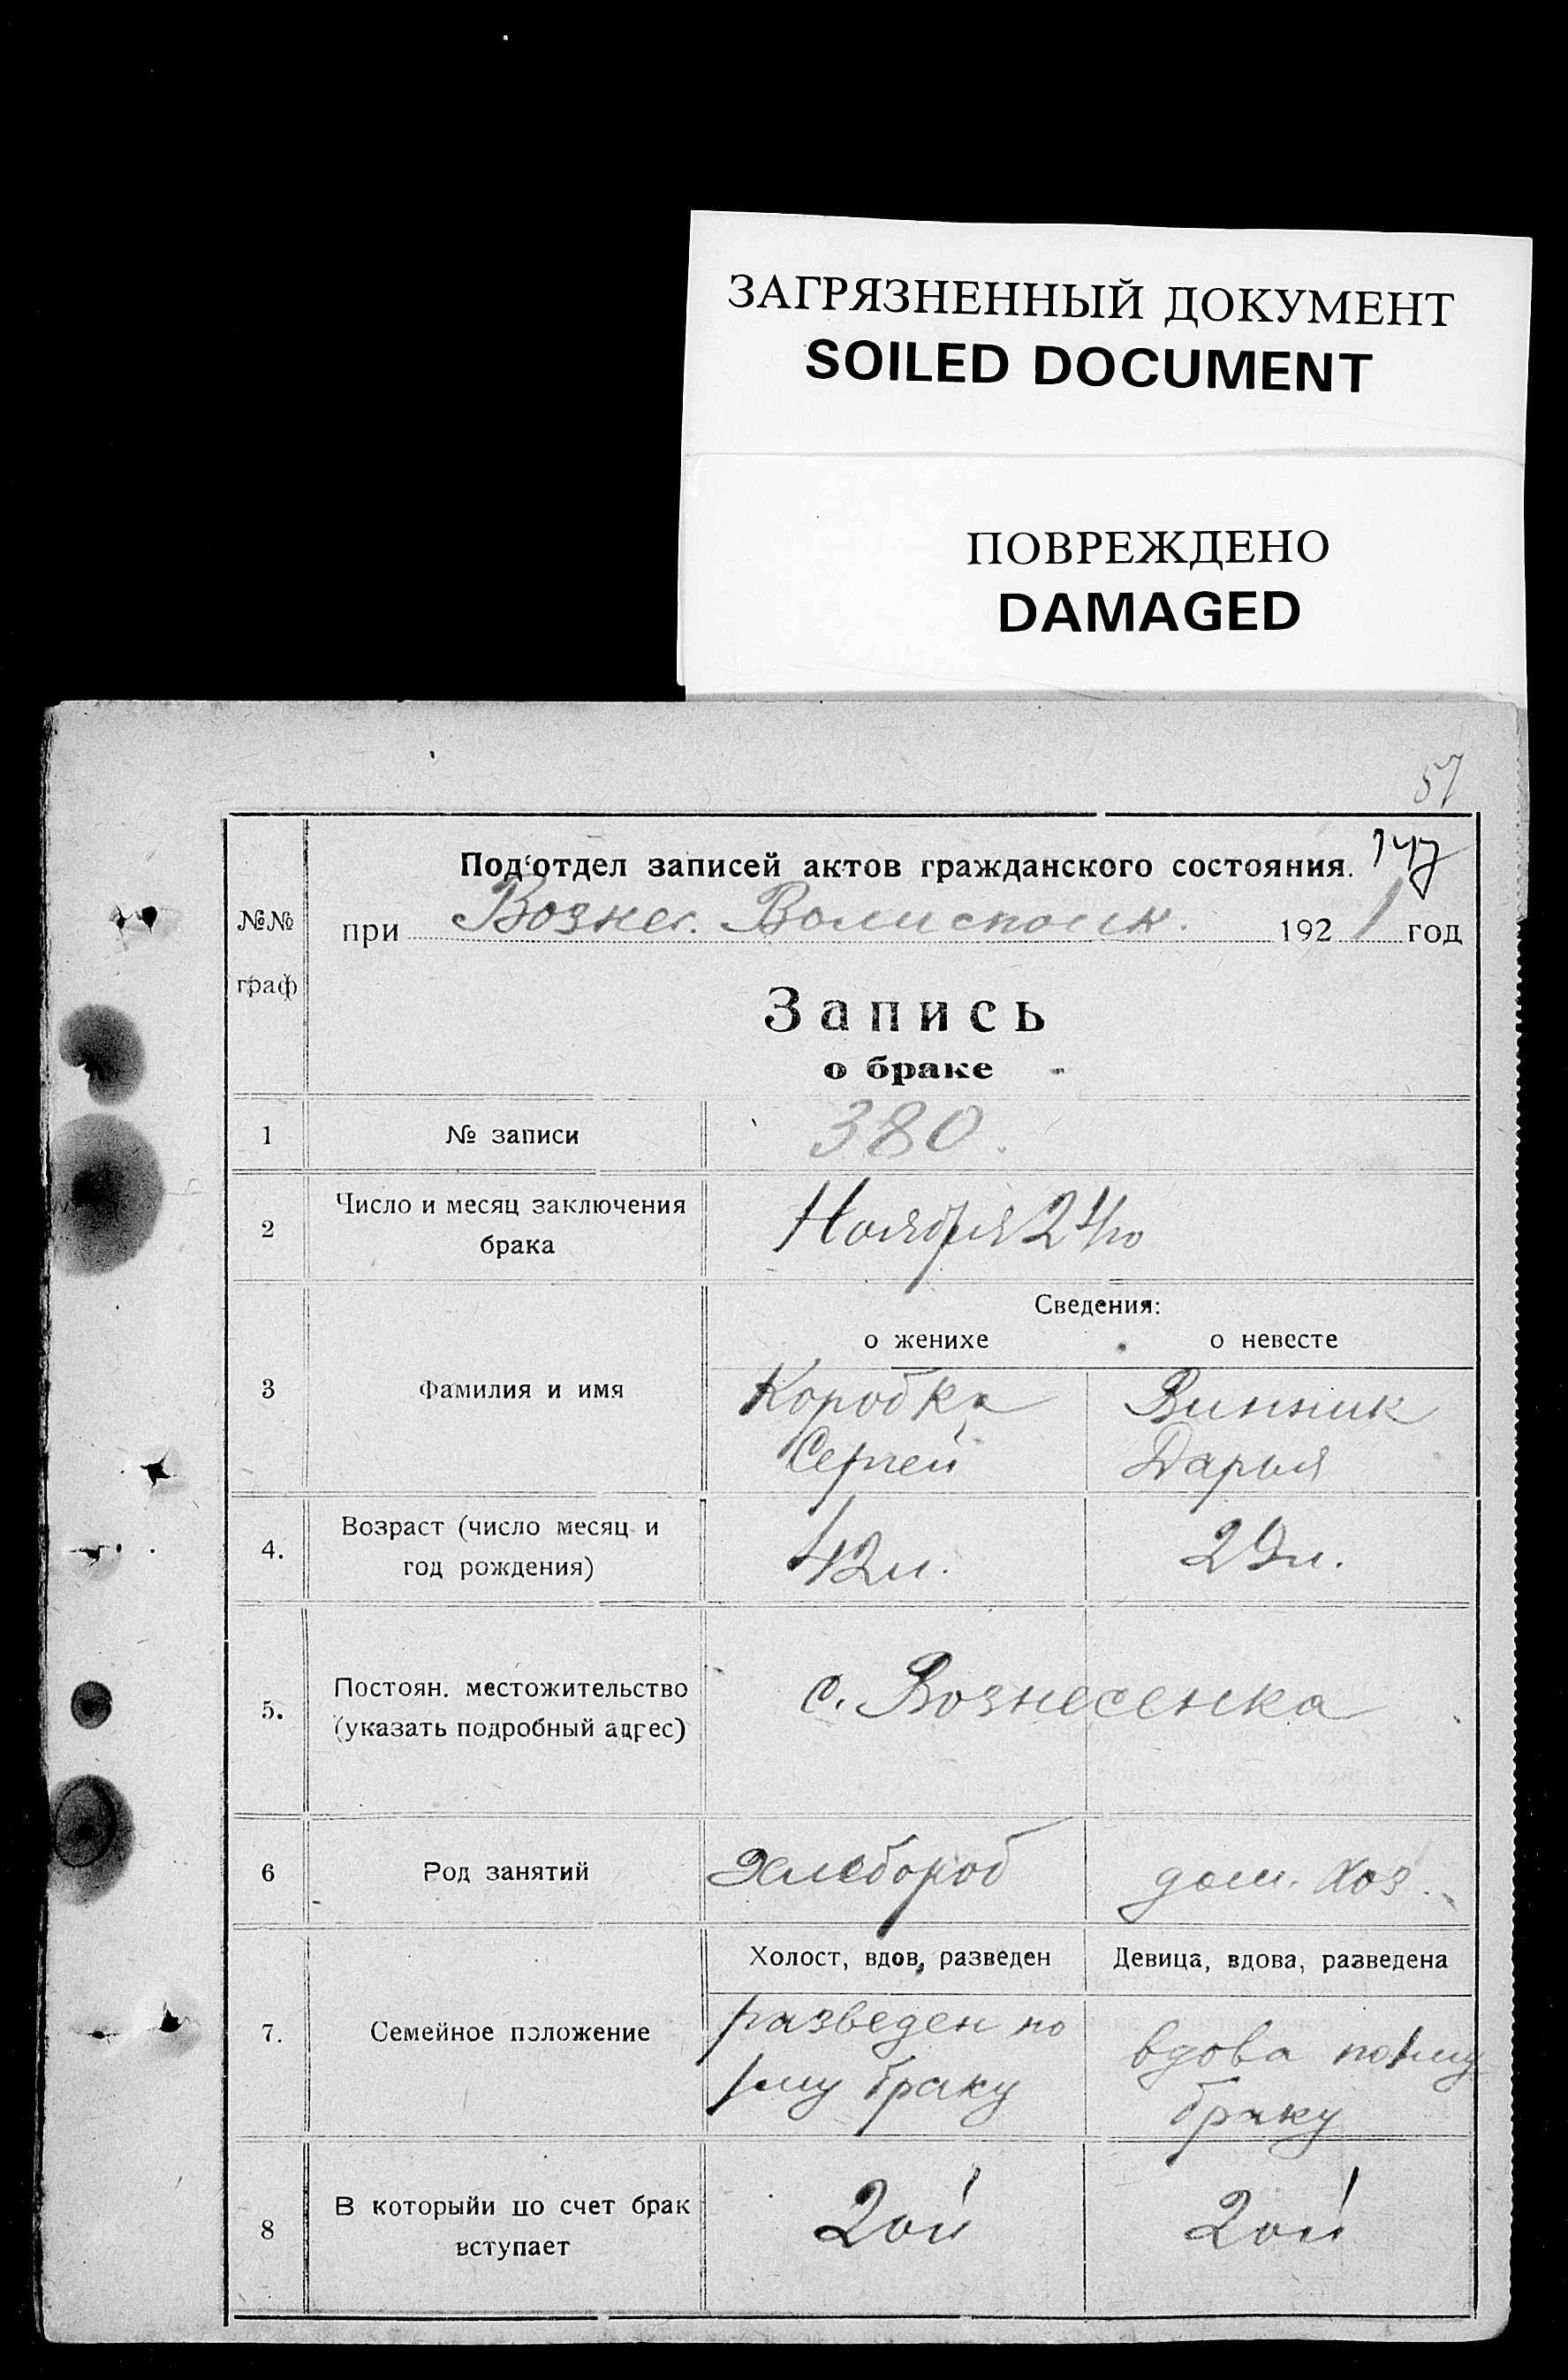 ЗАГРЯЗНЕННЫЙ ДОКУМЕНТ
SOILED DOCUMENT
ПОВРЕЖДЕНО
DAMAGED
57
Под'отдел записей актов гражданского состояния.
№№
граф
при Вознес. Волисполк. 1921 год
Запись
о браке
1 № записи 380.
2 Число и месяц заключения
брака
Ноября 24го
Сведения:
о женихе о невесте
3 Фамилия и имя
Коробка Винник
Сергей Дарья
4. Возраст (число месяц и
год рождения)
42 л. 29 л.
5. Постоян. местожительство
(указать подробный адрес)
с. Вознесенка
6 Род занятий Хлебороб дом. хоз.
Холост, вдов, разведен Девица, вдова, разведена
7. Семейное положение
разведен по вдова по 1му
1му браку браку
8 В которыйи по счет брак
вступает
2ой 2ой